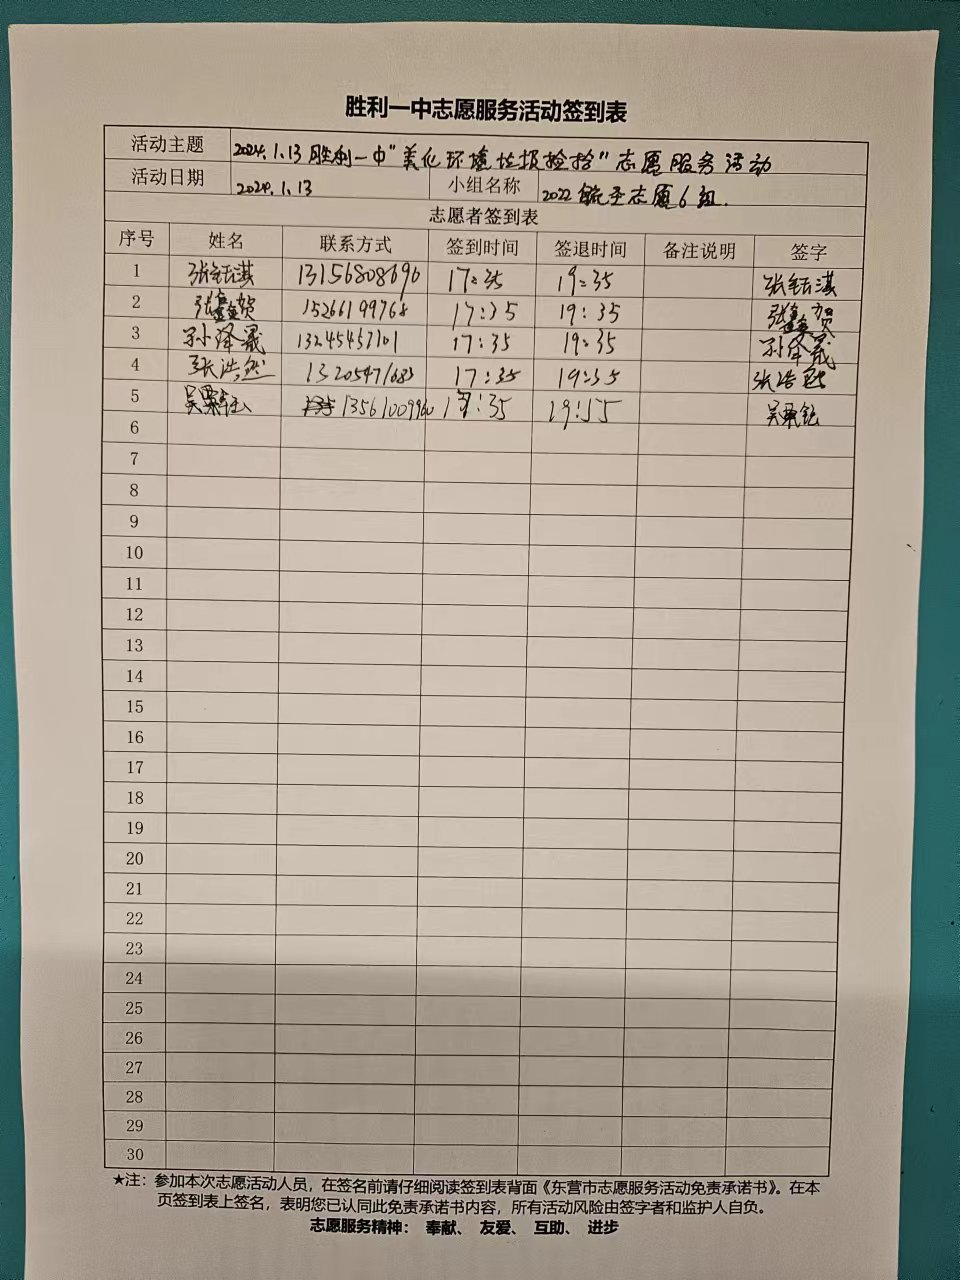 胜利一中志愿服务活动签到表
活动主题 2024.1.13胜利一中"美化环境垃圾捡拾"志愿服务活动
活动日期 2024.1.13 小组名称 2022级 志愿6组.
志愿者签到表
序号 姓名 联系方式 签到时间 签退时间 备注说明 签字
1 张钰淇 13156808696 17:35 19:35 张钰淇
2 张鑫贺 15266199768 17:35 19:35 张鑫贺
3 孙泽晟 13245457101 17:35 19:35 孙泽晟
4 张浩然 13205471683 17:35 19:35 张浩然
5 吴 钰 13561009960 17:35 19:35 吴 钰
6
7
8
9
10
11
12
13
14
15
16
17
18
19
20
21
22
23
24
25
26
27
28
29
30
★注：参加本次志愿活动人员，在签名前请仔细阅读签到表背面《东营市志愿服务活动免责承诺书》。在本
页签到表上签名，表明您已认同此免责承诺书内容，所有活动风险由签字者和监护人自负。
志愿服务精神： 奉献、 友爱、 互助、 进步